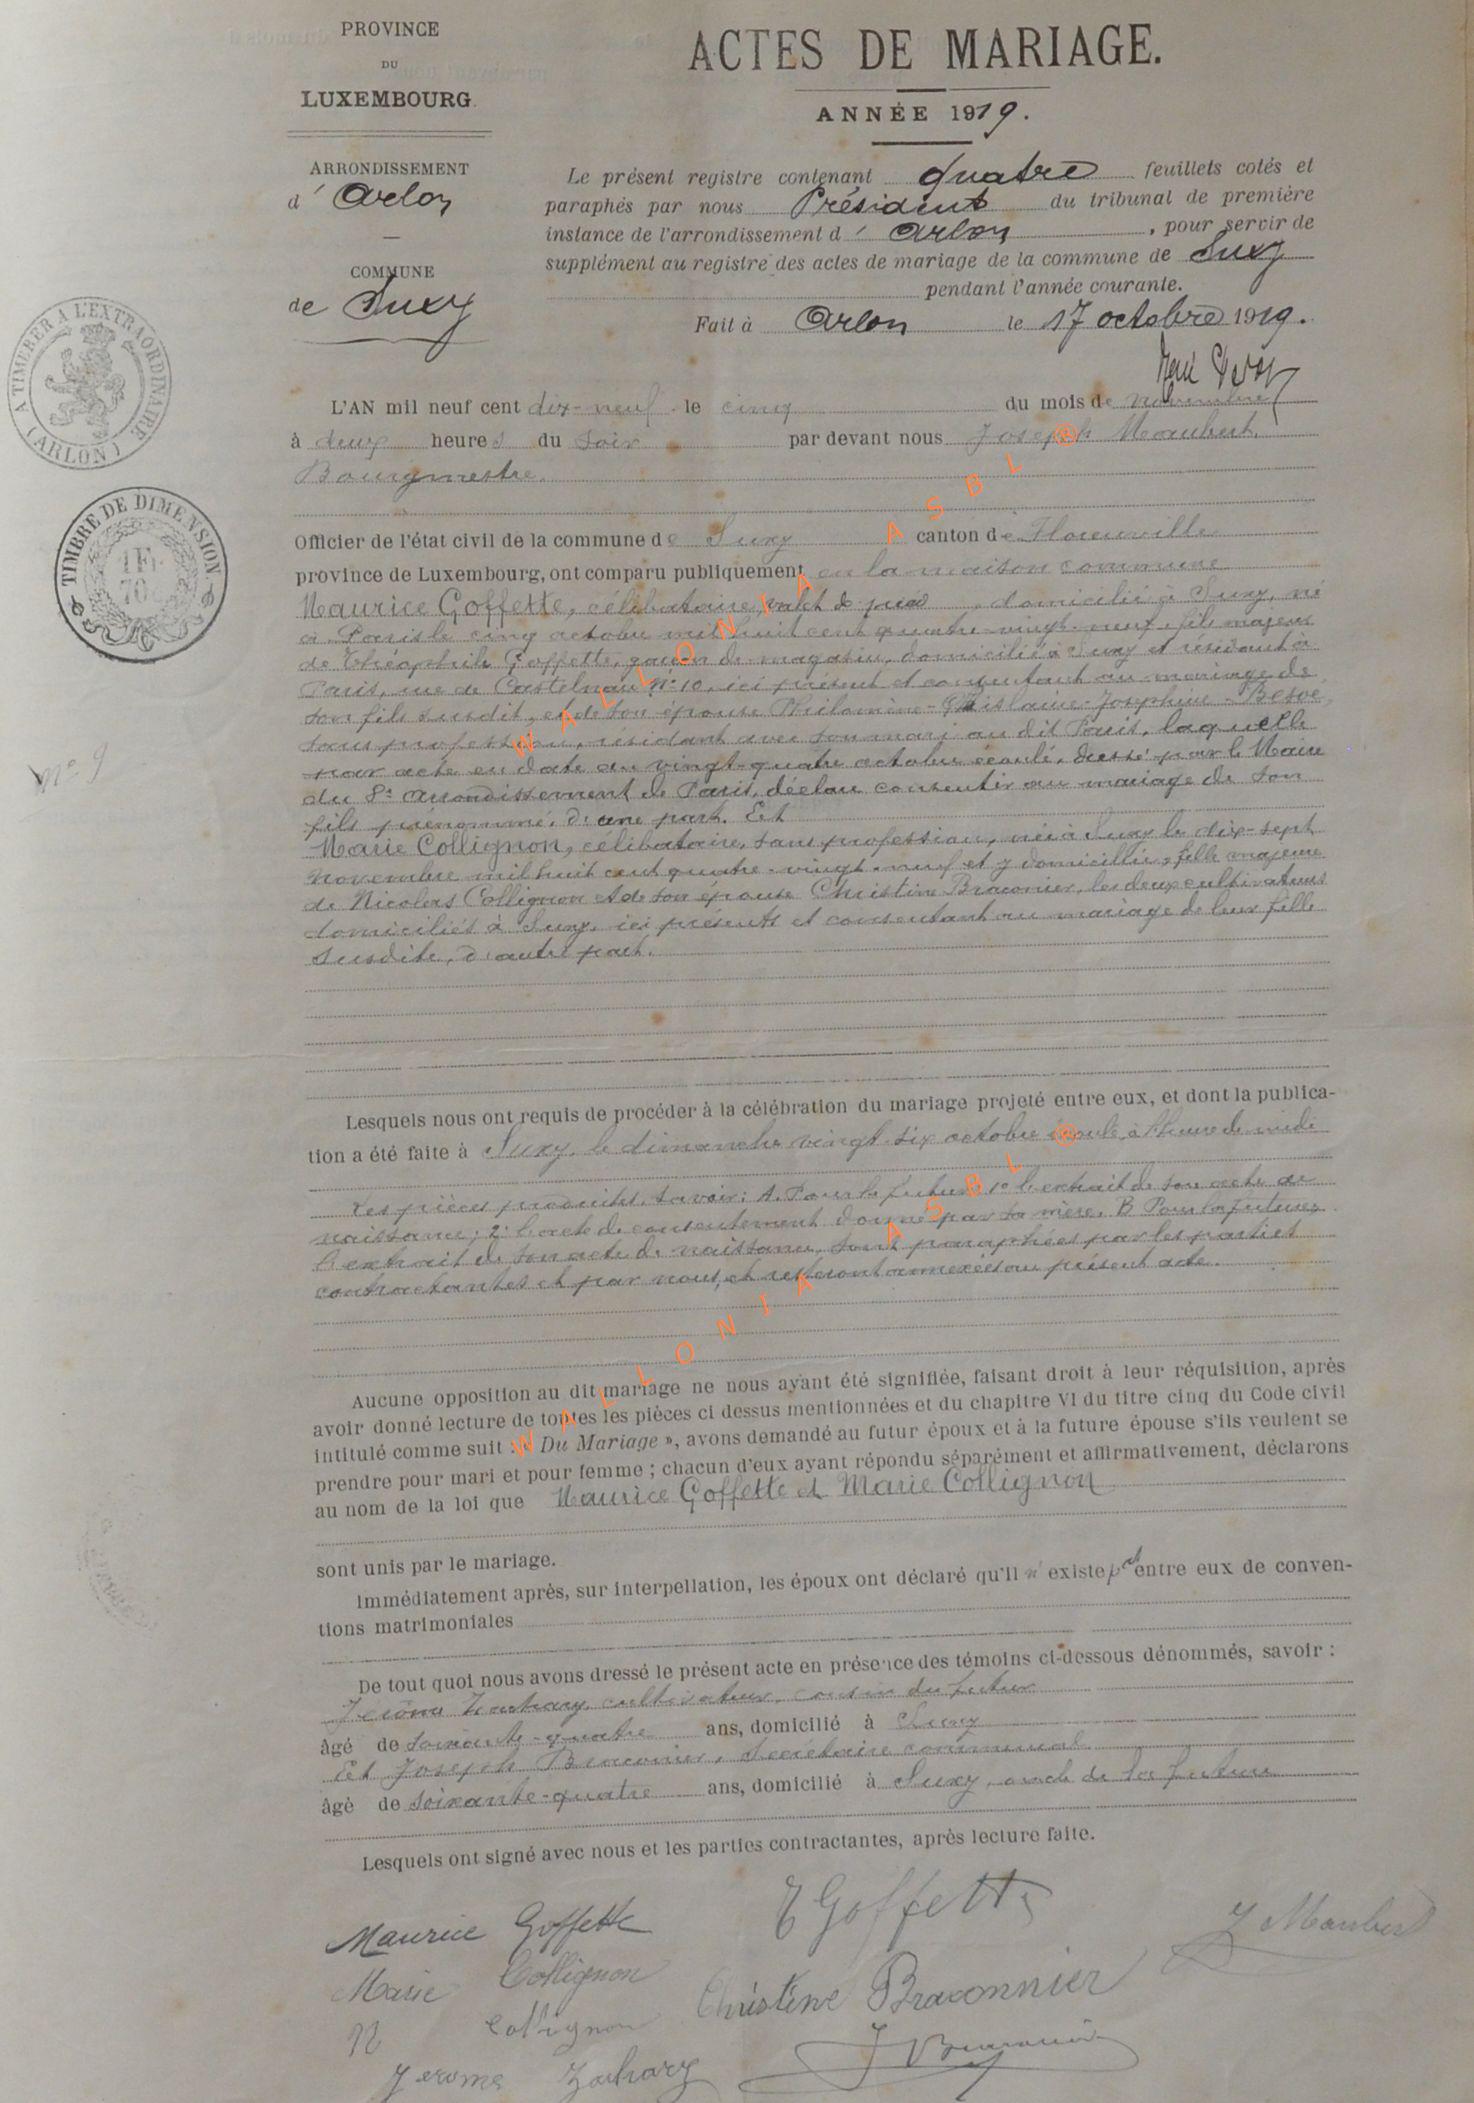 PROVINCE
DU
LUXEMBOURG.
ARRONDISSEMENT
d' Arlon
COMMUNE
de Suxy
A TIMBRER A L'EXTRAORDINAIRE
(ARLON)
TIMBRE DE DIMENSION
1 Fr
70
N° 9
ACTES DE MARIAGE.
ANNÉE 1919.
Le présent registre contenant quatre feuillets cotés et
paraphés par nous Président du tribunal de première
instance de l'arrondissement d' Arlon, pour servir de
supplément au registre des actes de mariage de la commune de Suxy
pendant l'année courante.
Fait à Arlon le 17 octobre 1919.
L'AN mil neuf cent dix-neuf le cinq du mois de novembre
à deux heures du soir par devant nous Joseph Maubert,
Bourgmestre.
Officier de l'état civil de la commune de Suxy canton de Florenville
province de Luxembourg, ont comparu publiquement en la maison commune
Maurice Goffette, célibataire, valet de pied, domicilié à Suxy, né
à Paris le cinq octobre mil huit cent quatre-vingt-neuf, fils majeur
de Théophile Goffette, garçon de magasin, domicilié à Suxy et résidant à
Paris, rue de Castelnau N° 10, ici présent et consentant au mariage de
son fils susdit, et de son épouse Philomène-Ghislaine-Josephine
sans profession, résidant avec son mari au dit Paris, laquelle
par acte en date du vingt-quatre octobre écoulé, dressé par le Maire
du 8e arrondissement de Paris, déclare consentir au mariage de son
fils prénommé, d'une part. Et
Marie Collignon, célibataire, sans profession, née à Suxy le dix-sept
novembre mil huit cent quatre-vingt-neuf et y domiciliée, fille majeure
de Nicolas Collignon et de son épouse Christine Braconier, les deux cultivateurs
domiciliés à Suxy, ici présents et consentant au mariage de leur fille
susdite, d'autre part.
Lesquels nous ont requis de procéder à la célébration du mariage projeté entre eux, et dont la publica-
tion a été faite à Suxy, le dimanche vingt-six octobre écoulé, à l'heure de midi
Les pièces produites, savoir: A. Pour le futur: 1° l'extrait de son acte de
naissance; 2° l'acte de consentement donné par sa mère. B Pour la future:
l'extrait de son acte de naissance, sont paraphées par les parties
contractantes et par nous, et resteront annexées au présent acte.
Aucune opposition au dit mariage ne nous ayant été signifiée, faisant droit à leur réquisition, après
avoir donné lecture de toutes les pièces ci dessus mentionnées et du chapitre VI du titre cinq du Code civil
intitulé comme suit : « Du Mariage », avons demandé au futur époux et à la future épouse s'ils veulent se
prendre pour mari et pour femme ; chacun d'eux ayant répondu séparément et affirmativement, déclarons
au nom de la loi que Maurice Goffette et Marie Collignon
sont unis par le mariage.
Immédiatement après, sur interpellation, les époux ont déclaré qu'il n'existe pas entre eux de conven-
tions matrimoniales
De tout quoi nous avons dressé le présent acte en présence des témoins ci-dessous dénommés, savoir :
Jérôme Zachary, cultivateur, cousin du futur
âgé de soixante-quatre ans, domicilié à Suxy
Et Joseph Braconier, Secrétaire communal
âgé de soixante-quatre ans, domicilié à Suxy, oncle de la future
Lesquels ont signé avec nous et les parties contractantes, après lecture faite.
Maurice Goffette
T Goffette
J Maubert
Marie Collignon
Christine Braconnier
N Collignon
J Braconier
Jerome Zachary
WALLONIA ASBL ®
WALLONIA ASBL ®